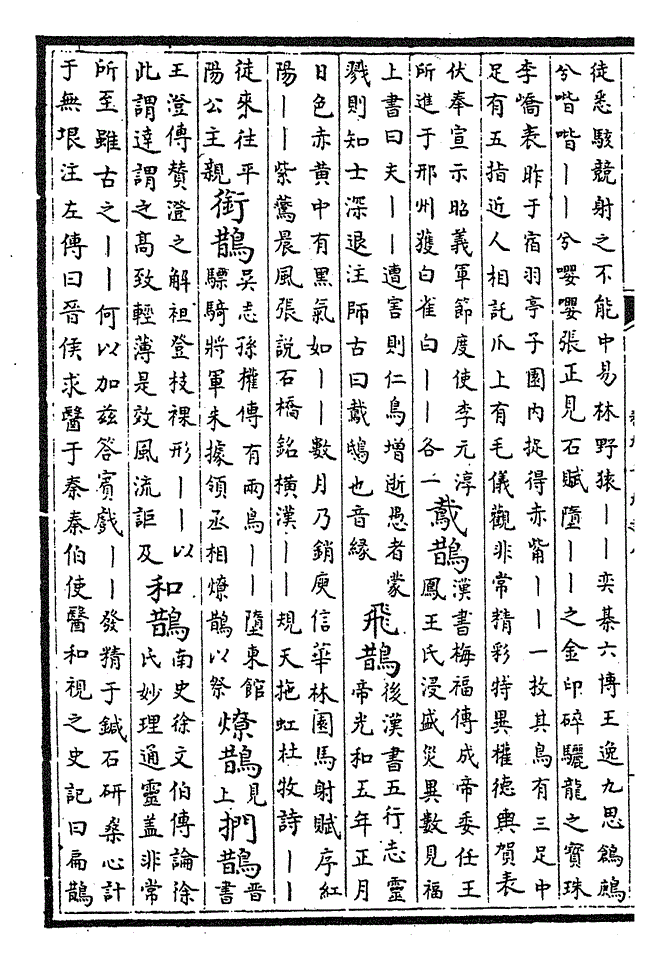 徒悉駭競射之不能中易林野猿——奕棊六博王逸九思鶬鶊
兮喈喈——兮嚶嚶張正見石賦墮——之金印碎驪龍之寶珠
李嶠表昨于宿羽亭子園内捉得赤觜——一枚其鳥有三足中
足有五指近人相託爪上有毛儀觀非常精彩特異權德輿賀表
伏奉宣示昭義軍節度使李元淳
所進于邢州獲白雀白——各一
鳶鵲
漢書梅福傳成帝委任王
鳳王氏浸盛災異數見福
上書曰夫——遭害則仁鳥增逝愚者蒙
戮則知士深退注師古曰鳶鴟也音緣
飛鵲
後漢書五行志靈
帝光和五年正月
日色赤黃中有黑氣如——數月乃銷庾信華林園馬射賦序紅
陽——紫鷰晨風張說石橋銘橫漢——規天拖虹杜牧詩——
徒來往平
陽公主親
銜鵲
吳志孫權傳有兩烏——墮東館
驃騎將軍朱據領丞相燎鵲以祭
燎鵲
見
上
捫鵲
晉
書
王澄傳贊澄之解袒登枝裸形——以
此謂達謂之高致輕薄是效風流詎及
和鵲
南史徐文伯傳論徐
氏妙理通靈蓋非常
所至雖古之——何以加兹答賓戲——發精于鍼石研桑心計
于無垠注左傳曰晉侯求醫于秦秦伯使醫和視之史記曰扁鵲